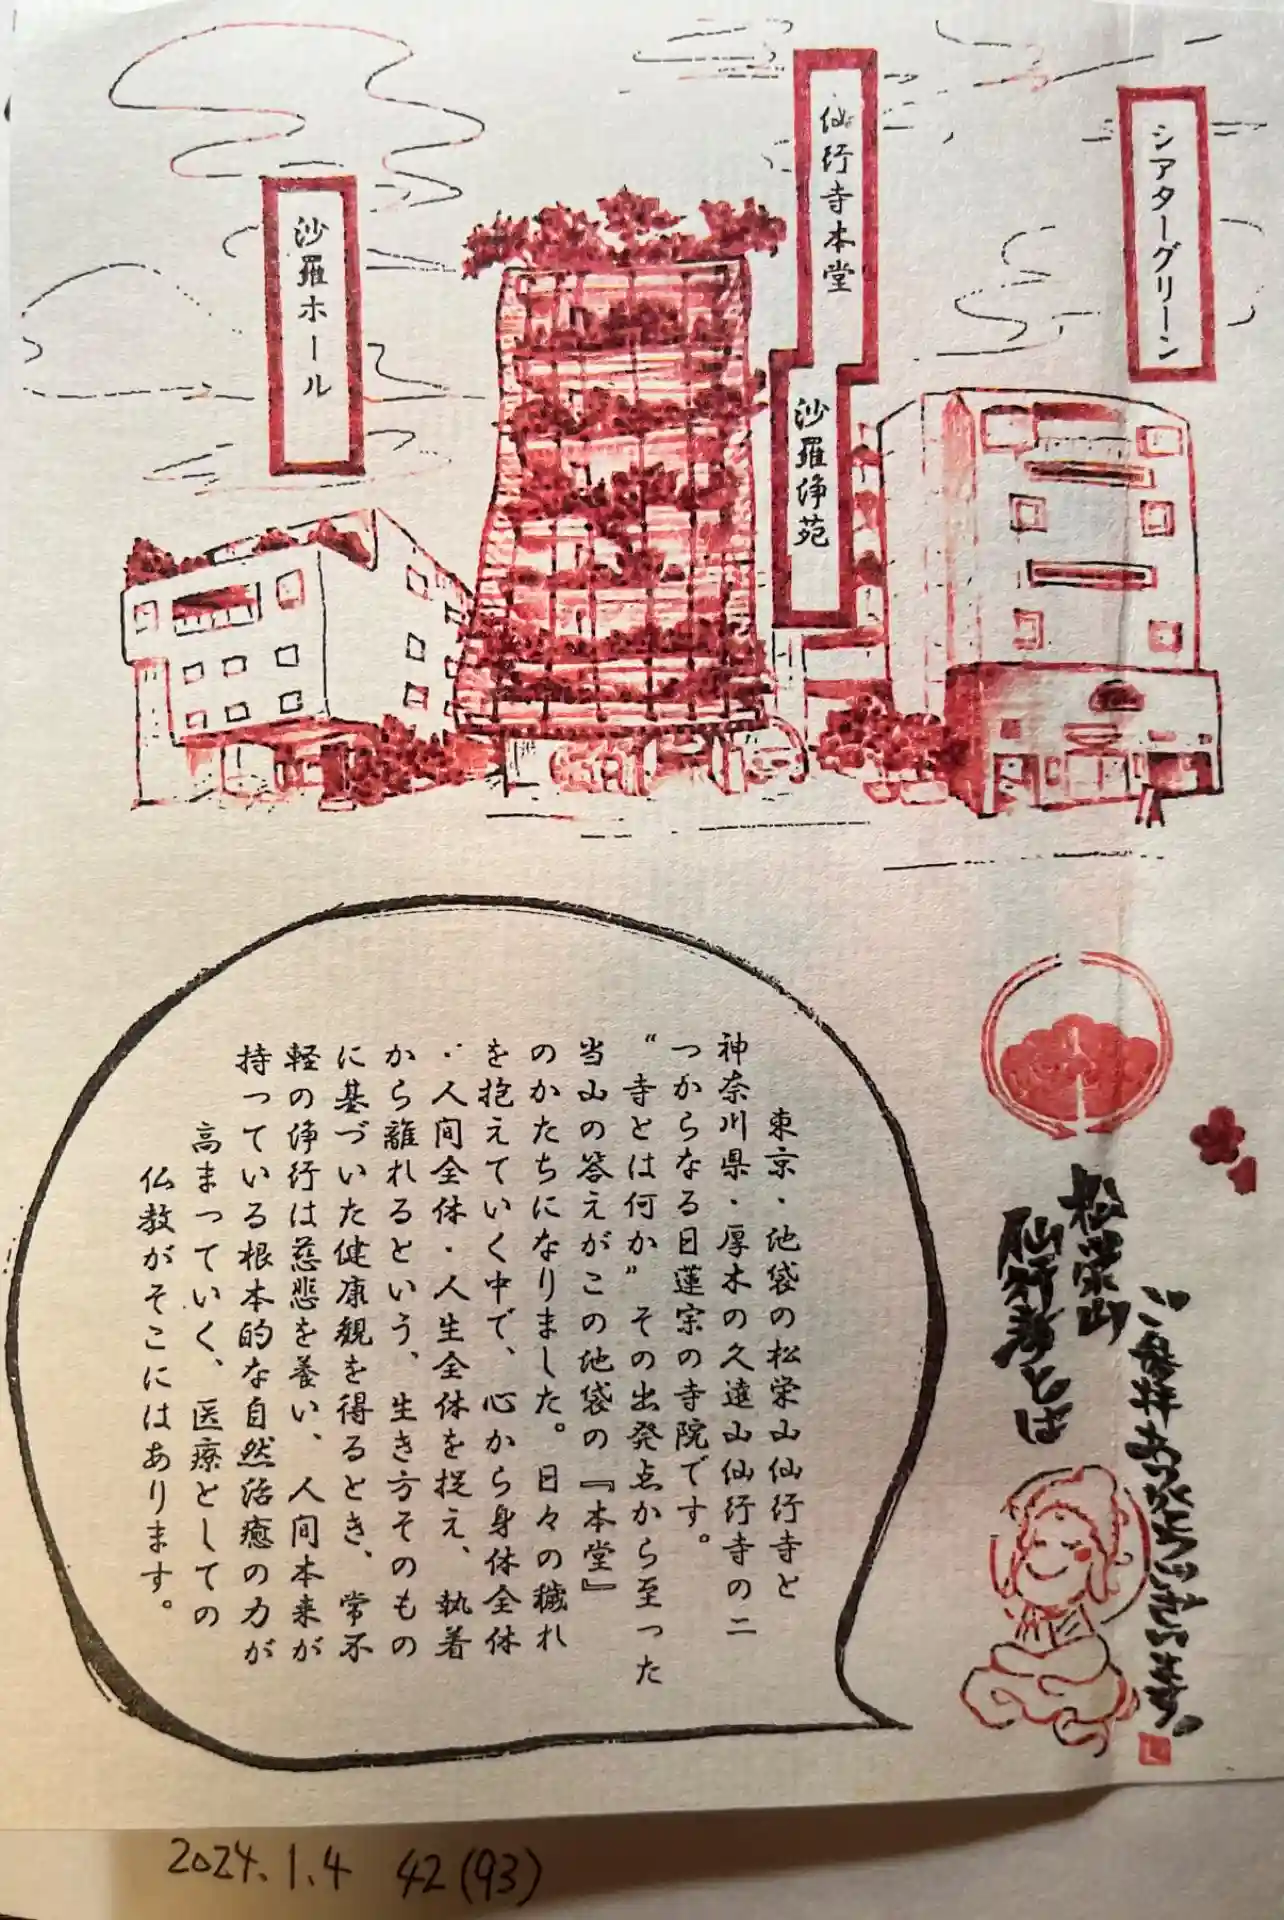 シアターグリーン
仙行寺本堂
沙羅浄苑
沙羅ホール
ご参拝ありがとうございます。
松栄山
仙行寺とは
東京・池袋の松栄山仙行寺と
神奈川県・厚木の久遠山仙行寺の二
つからなる日蓮宗の寺院です。
“寺とは何か”その出発点から至った
当山の答えがこの池袋の『本堂』
のかたちになりました。日々の穢れ
を抱えていく中で、心から身体全体
・人間全体・人生全体を捉え、執着
から離れるという、生き方そのもの
に基づいた健康観を得るとき、常不
軽の浄行は慈悲を養い、人間本来が
持っている根本的な自然治癒の力が
高まっていく、医療としての
仏教がそこにはあります。
2024.1.4 42(93)